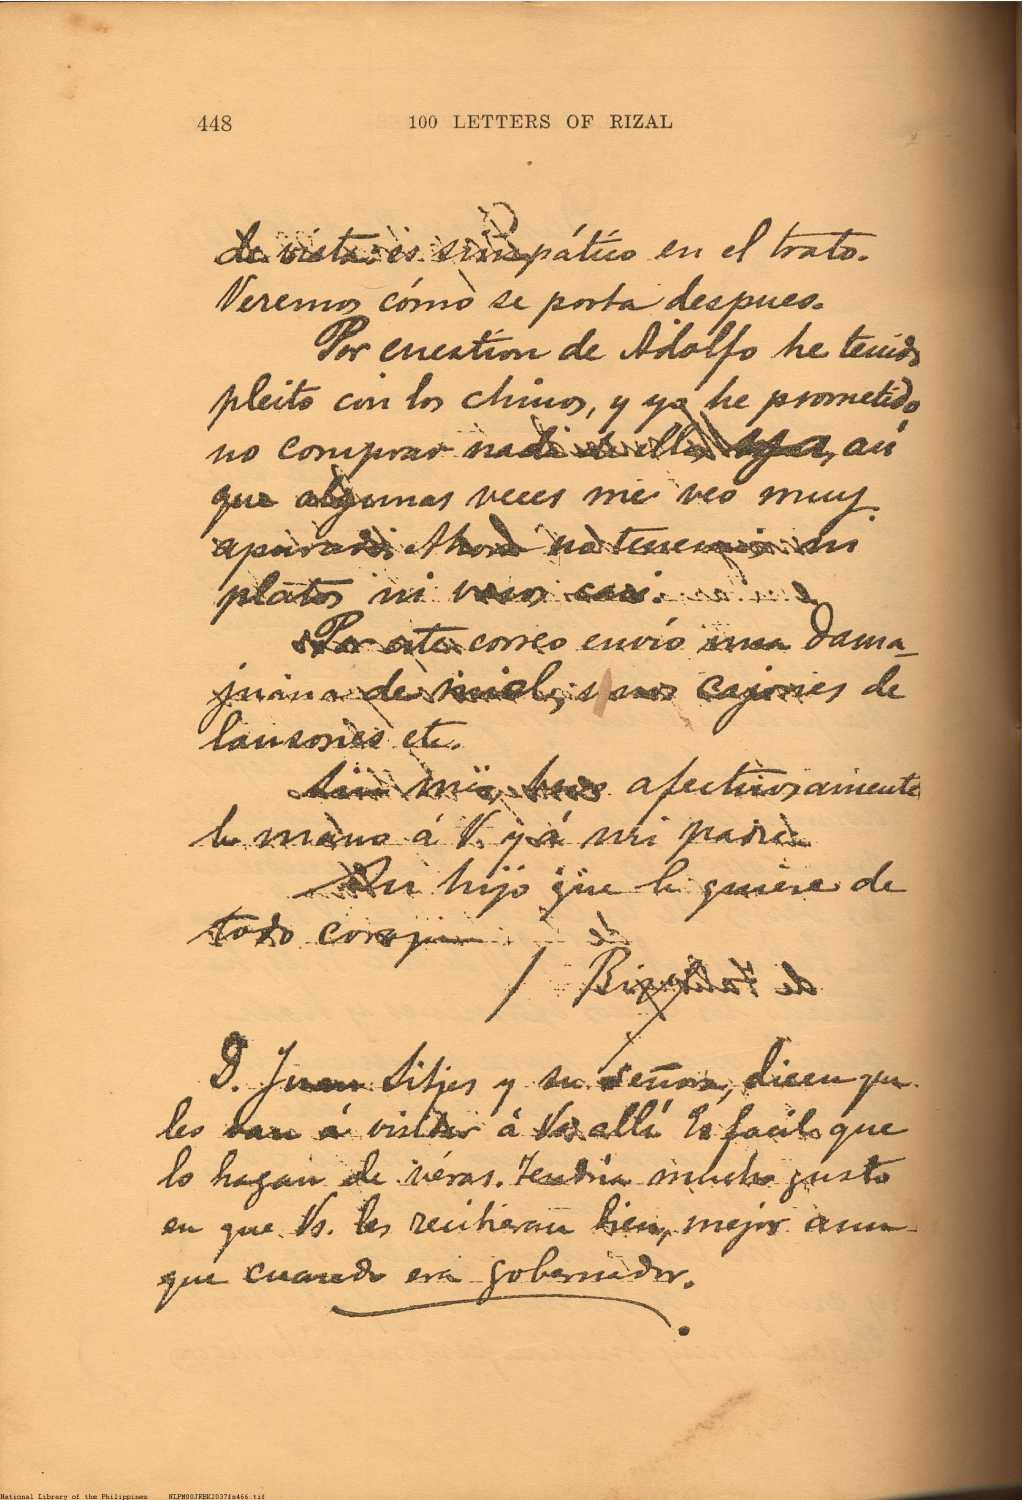 448
100 LETTERS OF RIZAL
de vista: es simpático en el trato.
Veremos cómo se porta despues.
Por cuestion de Adolfo he tenido
pleito con los chinos, y ya he prometido
no comprar nada de ellos, aú
que algunas veces me veo muy
apurado. Ahora no tenemos ni
platos ni vasos casi.
Por este correo envío una dama-
juana de miel, unos cajones de
lansones etc.
Sin más, beso afectuosamente
la mano á V. y á mi padre
Su hijo que le quiere de
todo corazon
J Rizal
D. Juan Sitjes y su señora, dicen qu
les van á visitar á Vs allí Es facil que
lo hagan de véras. Tendria mucho gusto
en que Vs. les recibieran bien, mejor aun
que cuando era gobernador.
National Library of the Philippines
NLPM00JRBK2037fs466.tif